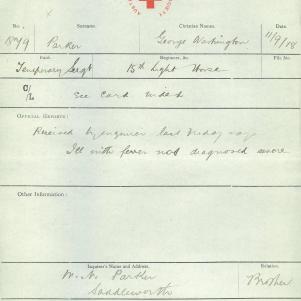 No. Surname. Christian Names. Date.
Parker George Washington 11/9/18
Rank. Regiment, &c. File No.
Temporary Sergt 15th Light Horse
C/L See Card Index
OFFICIAL REPORTS:
Received last Friday says
Ill with fever not diagnosed
Other Information:
Inquirer's Name and Address. Relation.
Parker Brother
Saddleworth